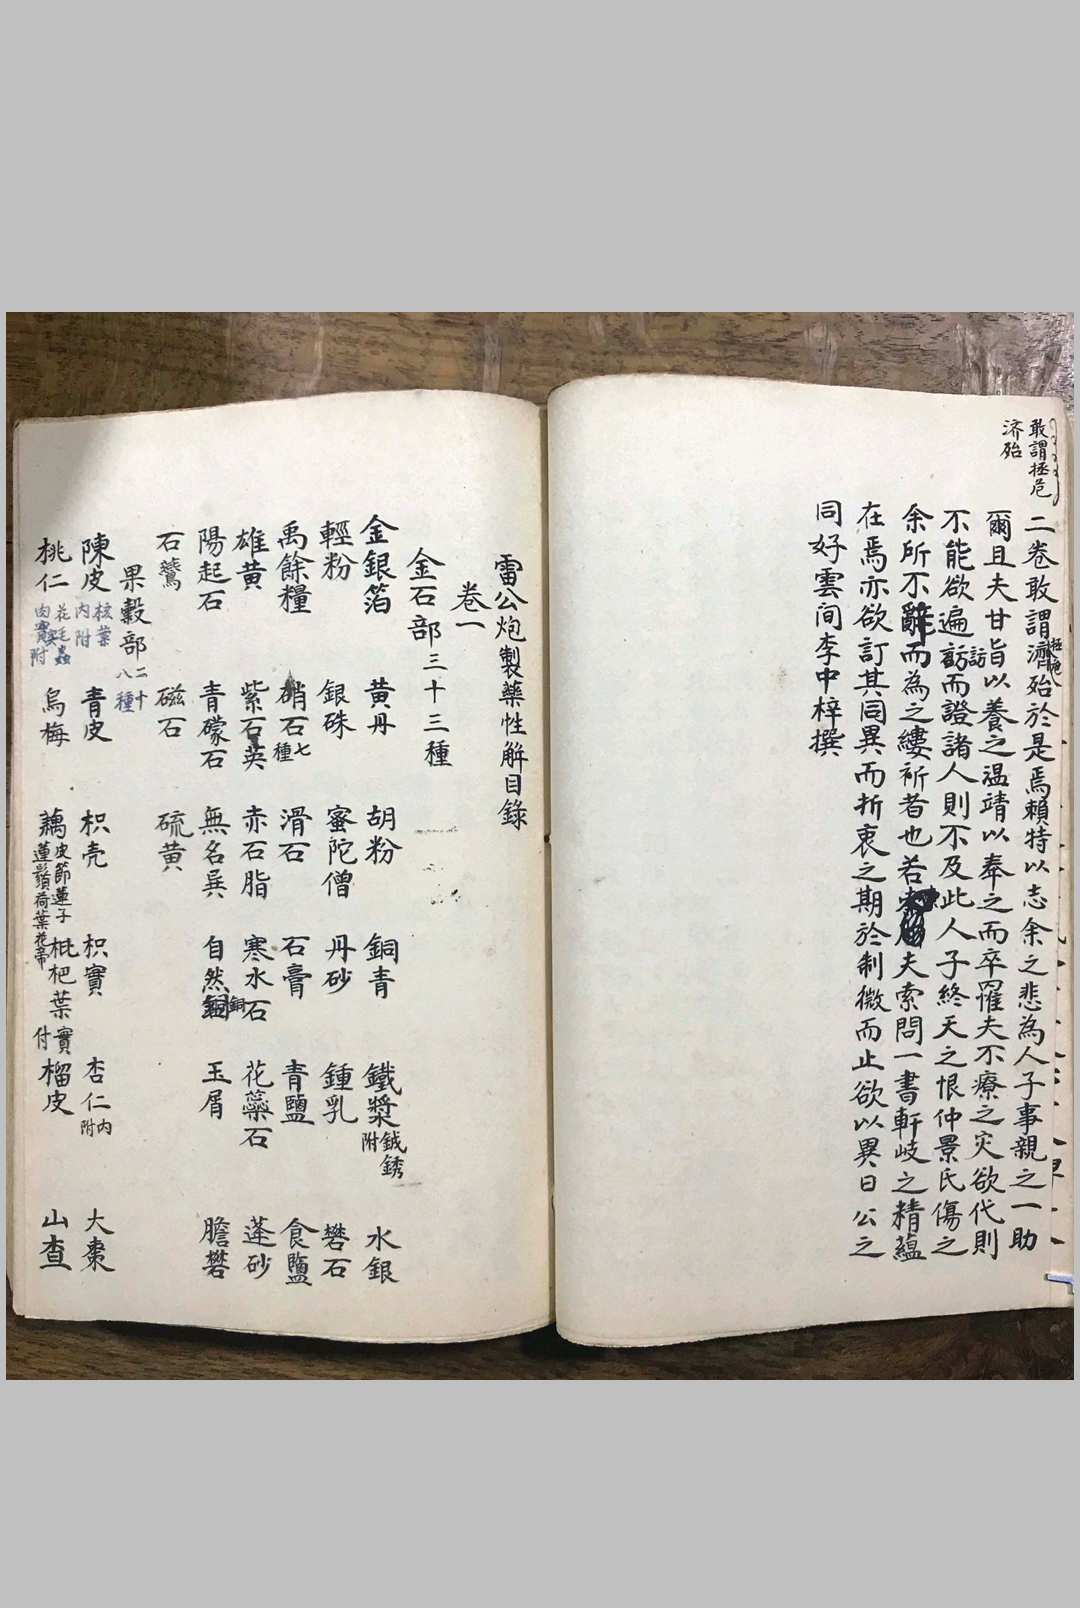 敢謂拯危
济殆
二卷敢謂濟殆於是焉賴特以志余之悲為人子事親之一助
拯危
爾且夫甘旨以養之温靖以奉之而卒罹夫不療之灾欲代則
不能欲遍訪而證諸人則不及此人子終天之恨仲景氏傷之
訪
余所不辭而為之縷析者也若夫索問一書軒岐之精蘊
在焉亦欲訂其同異而折衷之期於制微而止欲以異日公之
同好雲间李中梓撰
雷公炮製藥性解目錄
卷一
金石部三十三種
金銀箔 黃丹 胡粉 銅青 鐵漿鉞銹附 水銀
輕粉 銀硃 蜜陀僧 丹砂 鍾乳 礬石
禹餘糧 硝石七種 滑石 石膏 青鹽 食鹽
雄黃 紫石英 赤石脂 寒水石 花蘂石 蓬砂
陽起石 青礞石 無名異 自然銅 玉屑 膽礬
銅
石鷰 磁石 硫黃
果穀部二十八種
陳皮核葉内附 青皮 枳壳 枳實 杏仁内附 大棗
桃仁花毛蟲肉實附 烏梅 藕皮節蓮子蓮鬚荷葉花蒂 枇杷葉實付 榴皮 山查